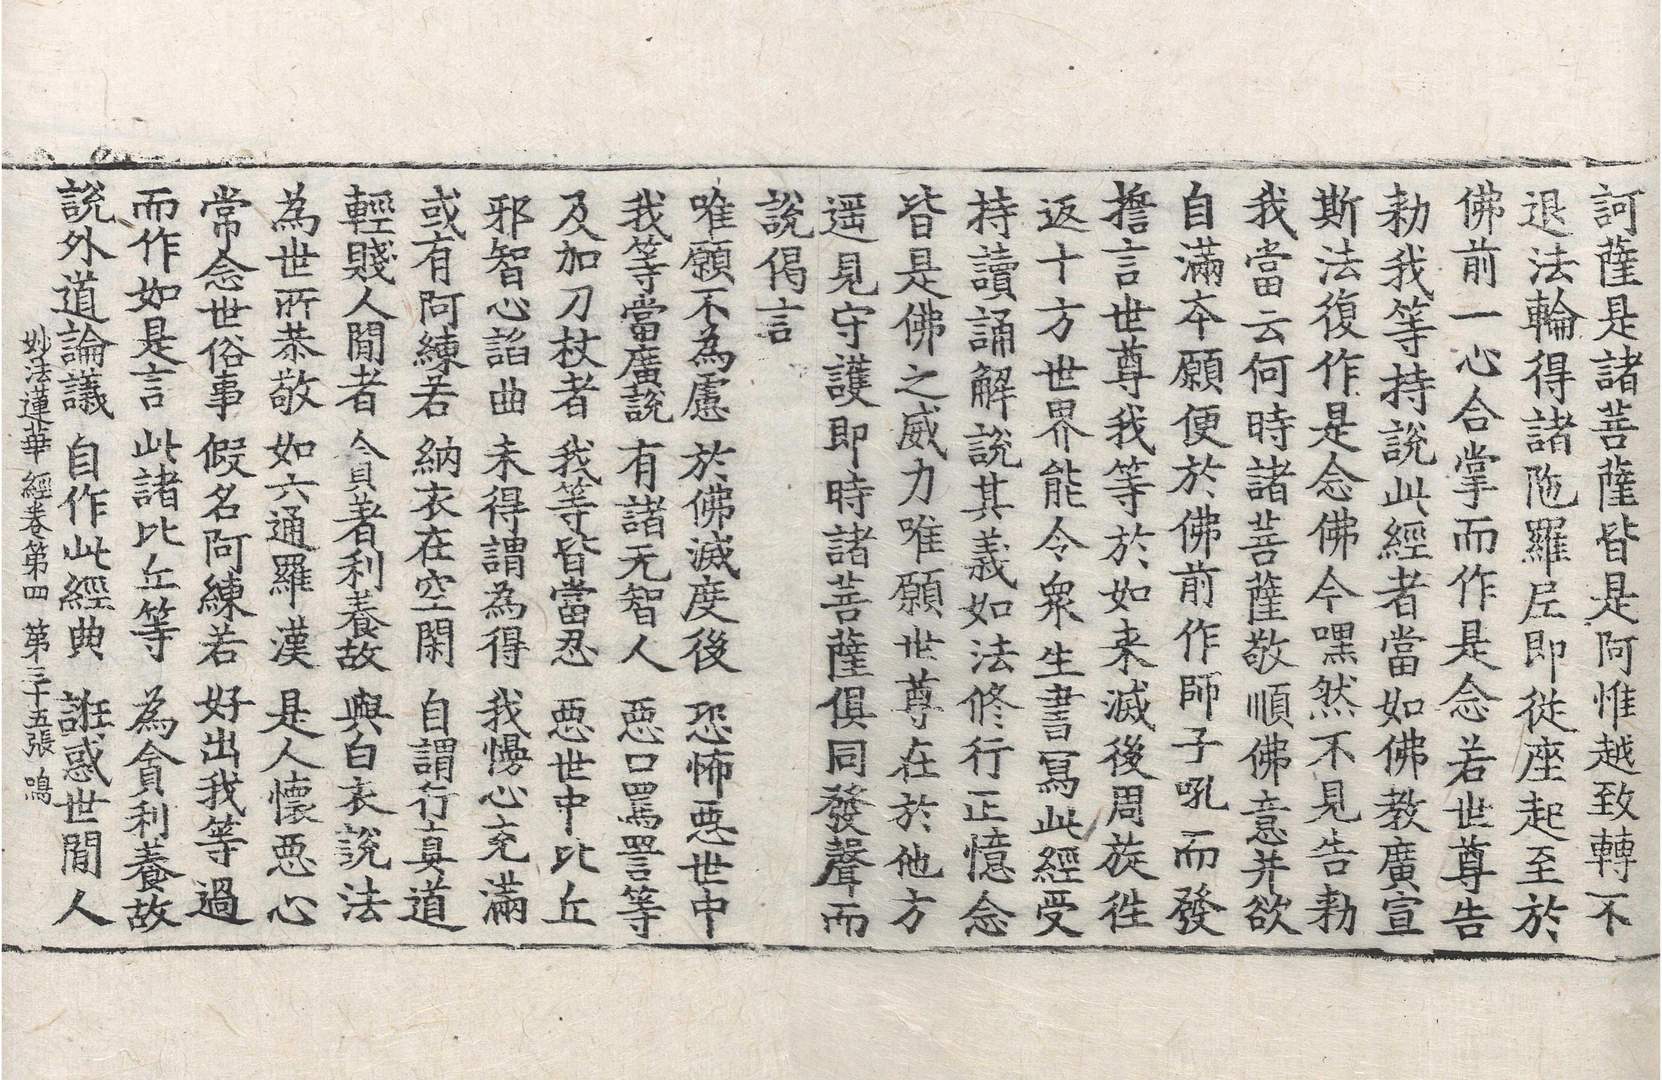 訶薩是諸菩薩皆是阿惟越致轉不
退法輪得諸陁羅尼即從座起至於
佛前一心合掌而作是念若世尊告
勑我等持說此經者當如佛教廣宣
斯法復作是念佛今嘿然不見告勑
我當云何時諸菩薩敬順佛意并欲
自滿本願便於佛前作師子吼而發
擔言世尊我等於如来滅後周旋徃
返十方世界能令衆生書寫此經受
持讀誦解說其義如法修行正憶念
皆是佛之威力唯願世尊在於他方
遥見守護即時諸菩薩俱同發聲而
說偈言
唯願不為慮 於佛滅度後 恐怖惡世中
我等當廣說 有諸无智人 惡口罵詈等
及加刀杖者 我等皆當忍 惡世中比丘
邪智心諂曲 未得謂為得 我慢心充滿
或有阿練若 納衣在空閑 自謂行真道
輕賤人閒者 貪著利養故 與白衣說法
為世所恭敬 如六通羅漢 是人懷惡心
常念世俗事 假名阿練若 好出我等過
而作如是言 此諸比丘等 為貪利養故
說外道論議 自作此經典 誑惑世閒人
妙法蓮華經卷第四 第三十五張 鳴